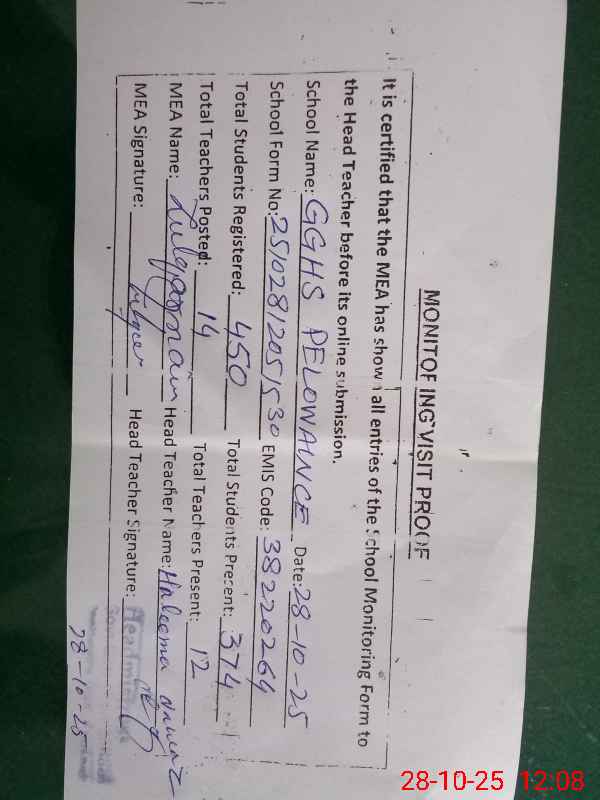 MONITORING VISIT PROOF
It is certified that the MEA has shown all entries of the School Monitoring Form to
the Head Teacher before its online submission.
School Name: GGHS PELOWAINCE Date: 28-10-25
School Form No: 251028120515 30 EMIS Code: 38220264
Total Students Registered: 450 Total Students Present: 374
Total Teachers Posted: 14 Total Teachers Present: 12
MEA Name: Head Teacher Name: Haleema
MEA Signature: Head Teacher Signature:
28-10-25
28-10-25 12:08